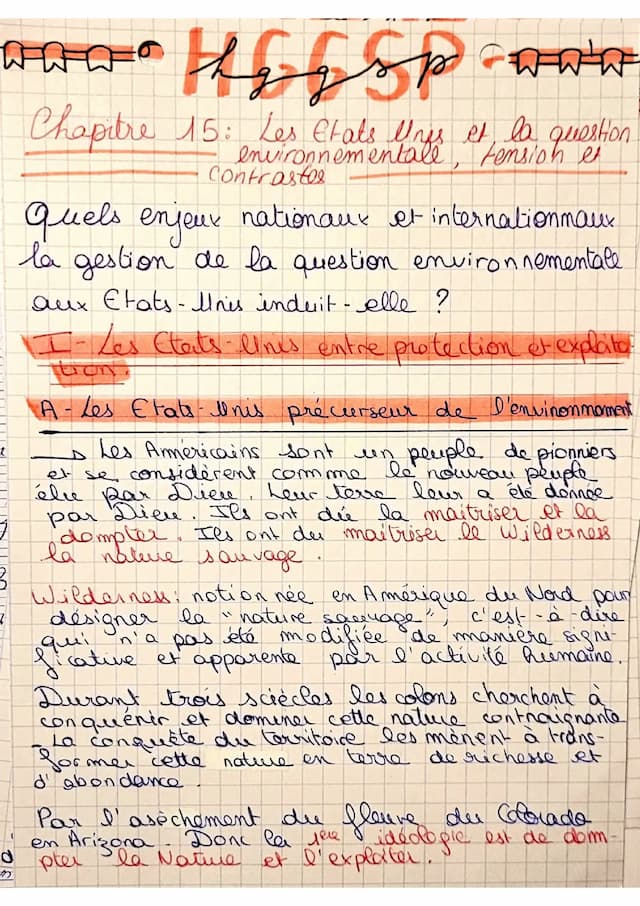 HGGSP
hggsp
Chapitre 15: Les Etats Unis et la question
environnementale, tension et
contrastes
Quels enjeux nationaux et internationnaux
la gestion de la question environnementale
aux Etats-Unis induit-elle ?
I- Les Etats-Unis entre protection et exploita
tion.
A- Les Etats-Unis précurseur de l'environnoment
Les Américains sont un peuple de pionniers
et se considèrent comme le nouveau peuple
élu par Dieu. Leur terre leur a été donnée
par Dieu. Ils ont dû la maitriser et la
dompter. Ils ont du maitriser le Wilderness
la nature sauvage.
Wilderness: notion née en Amérique du Nord pour
désigner la "nature sauvage", c'est-à-dire
qui n'a pas été modifiée de manière signi-
ficative et apparente par l'activité humaine.
Durant trois sciècles les colons cherchent à
conquérir et dominer cette nature contraignante
La conquête du territoire les mènent à trans-
former cette nature en terre de richesse et
d'abondance.
Par l'asèchement du fleuve du Colorado
en Arizona. Donc la 1ère idéologie est de dom-
pter la Nature et l'exploiter.